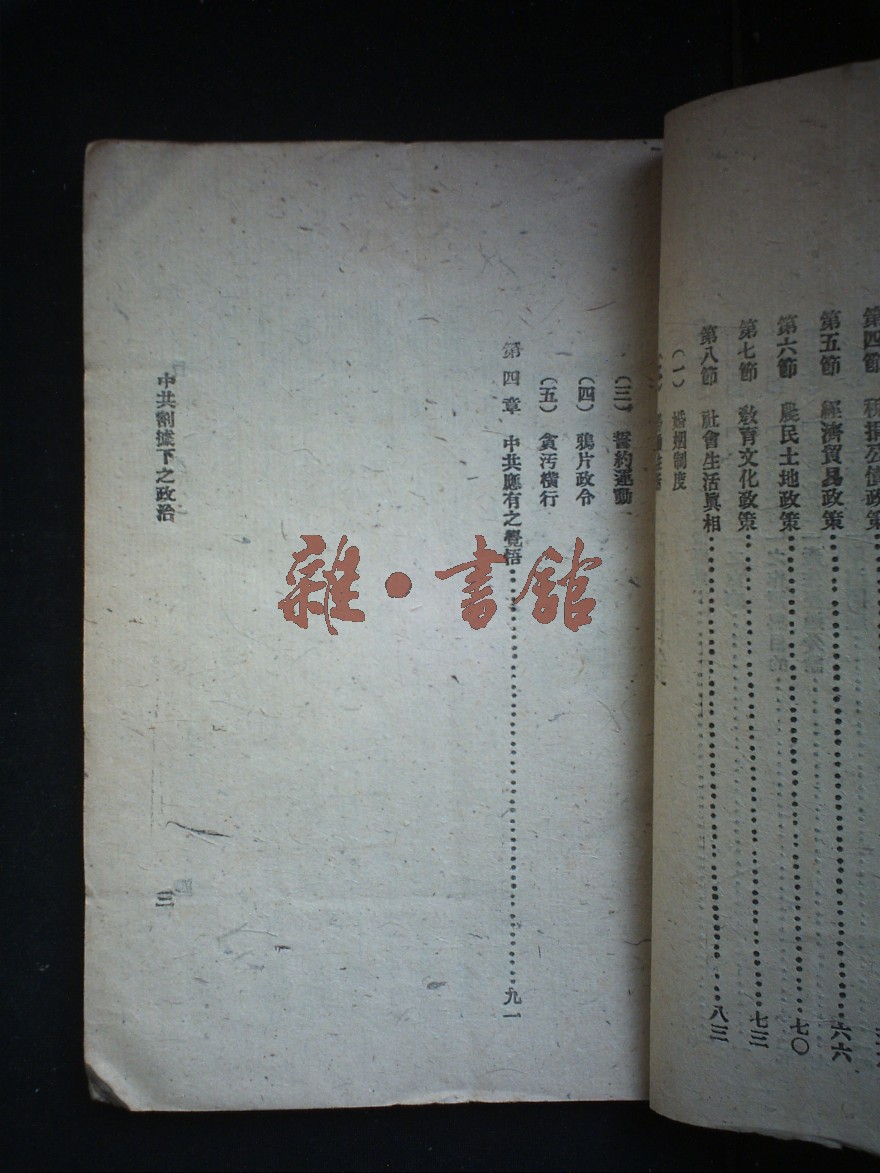 第四節 稅捐公債政策
第五節 經濟貿易政策 六六
第六節 農民土地政策 七〇
第七節 教育文化政策 七三
第八節 社會生活眞相 八三
(一) 婚姻制度
(三) 誓約運動
(四) 鴉片政令
(五) 貪汚橫行
第四章 中共應有之覺悟 九一
中共割據下之政治 三
雜·書館